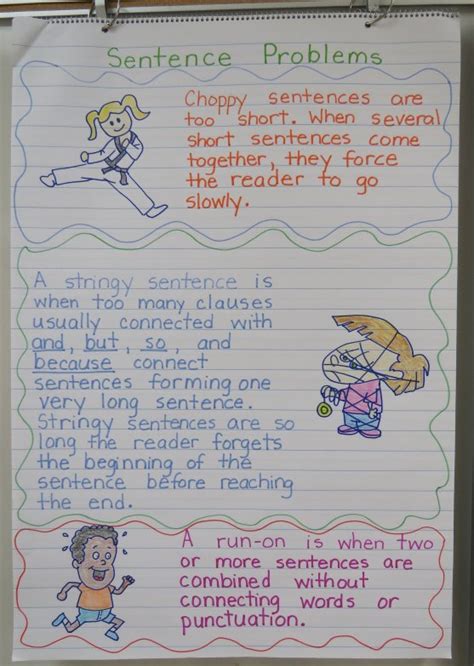 Sentence Problems
Choppy sentences are
too short. When several
short sentences come
together, they force
the reader to go
slowly.
A stringy sentence is
when too many clauses
usually connected with
and, but, so, and
because connect
sentences forming one
very long sentence.
Stringy sentences are so
long the reader forgets
the beginning of the
sentence before reaching
the end.
A run-on is when two
or more sentences are
combined without
connecting words or
punctuation.